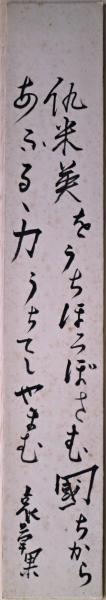 仇米英をうちほろぼさむ國ちから
あふるゝ力うちてしやまむ